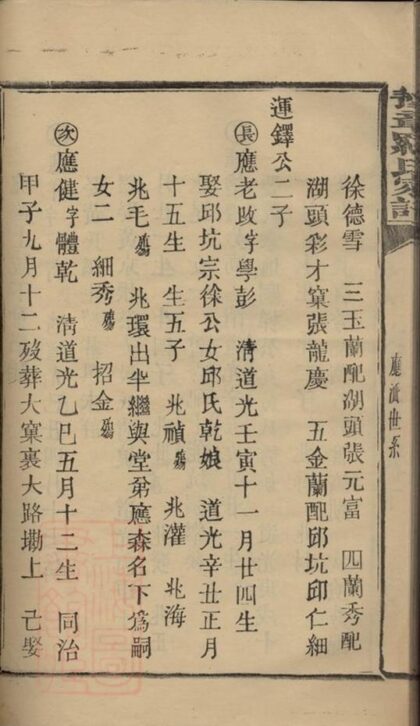 豫章羅氏家譜
應派世系
徐德雪 三玉蘭配湖頭張元富 四蘭秀配
湖頭彩才窠張龍慶 五金蘭配邱坑邱仁細
運鐸公二子
長應老改字學彭 清道光壬寅十一月廿四生
娶邱坑宗徐公女邱氏乾娘 道光辛丑正月
十五生 生五子 兆禎殤 兆灌 兆海
兆毛殤 兆環出半繼與堂弟應森名下為嗣
女二 細秀殤 招金殤
次應健字體乾 清道光乙巳五月十二生 同治
甲子九月十二歿葬大窠裏大路墈上 已娶